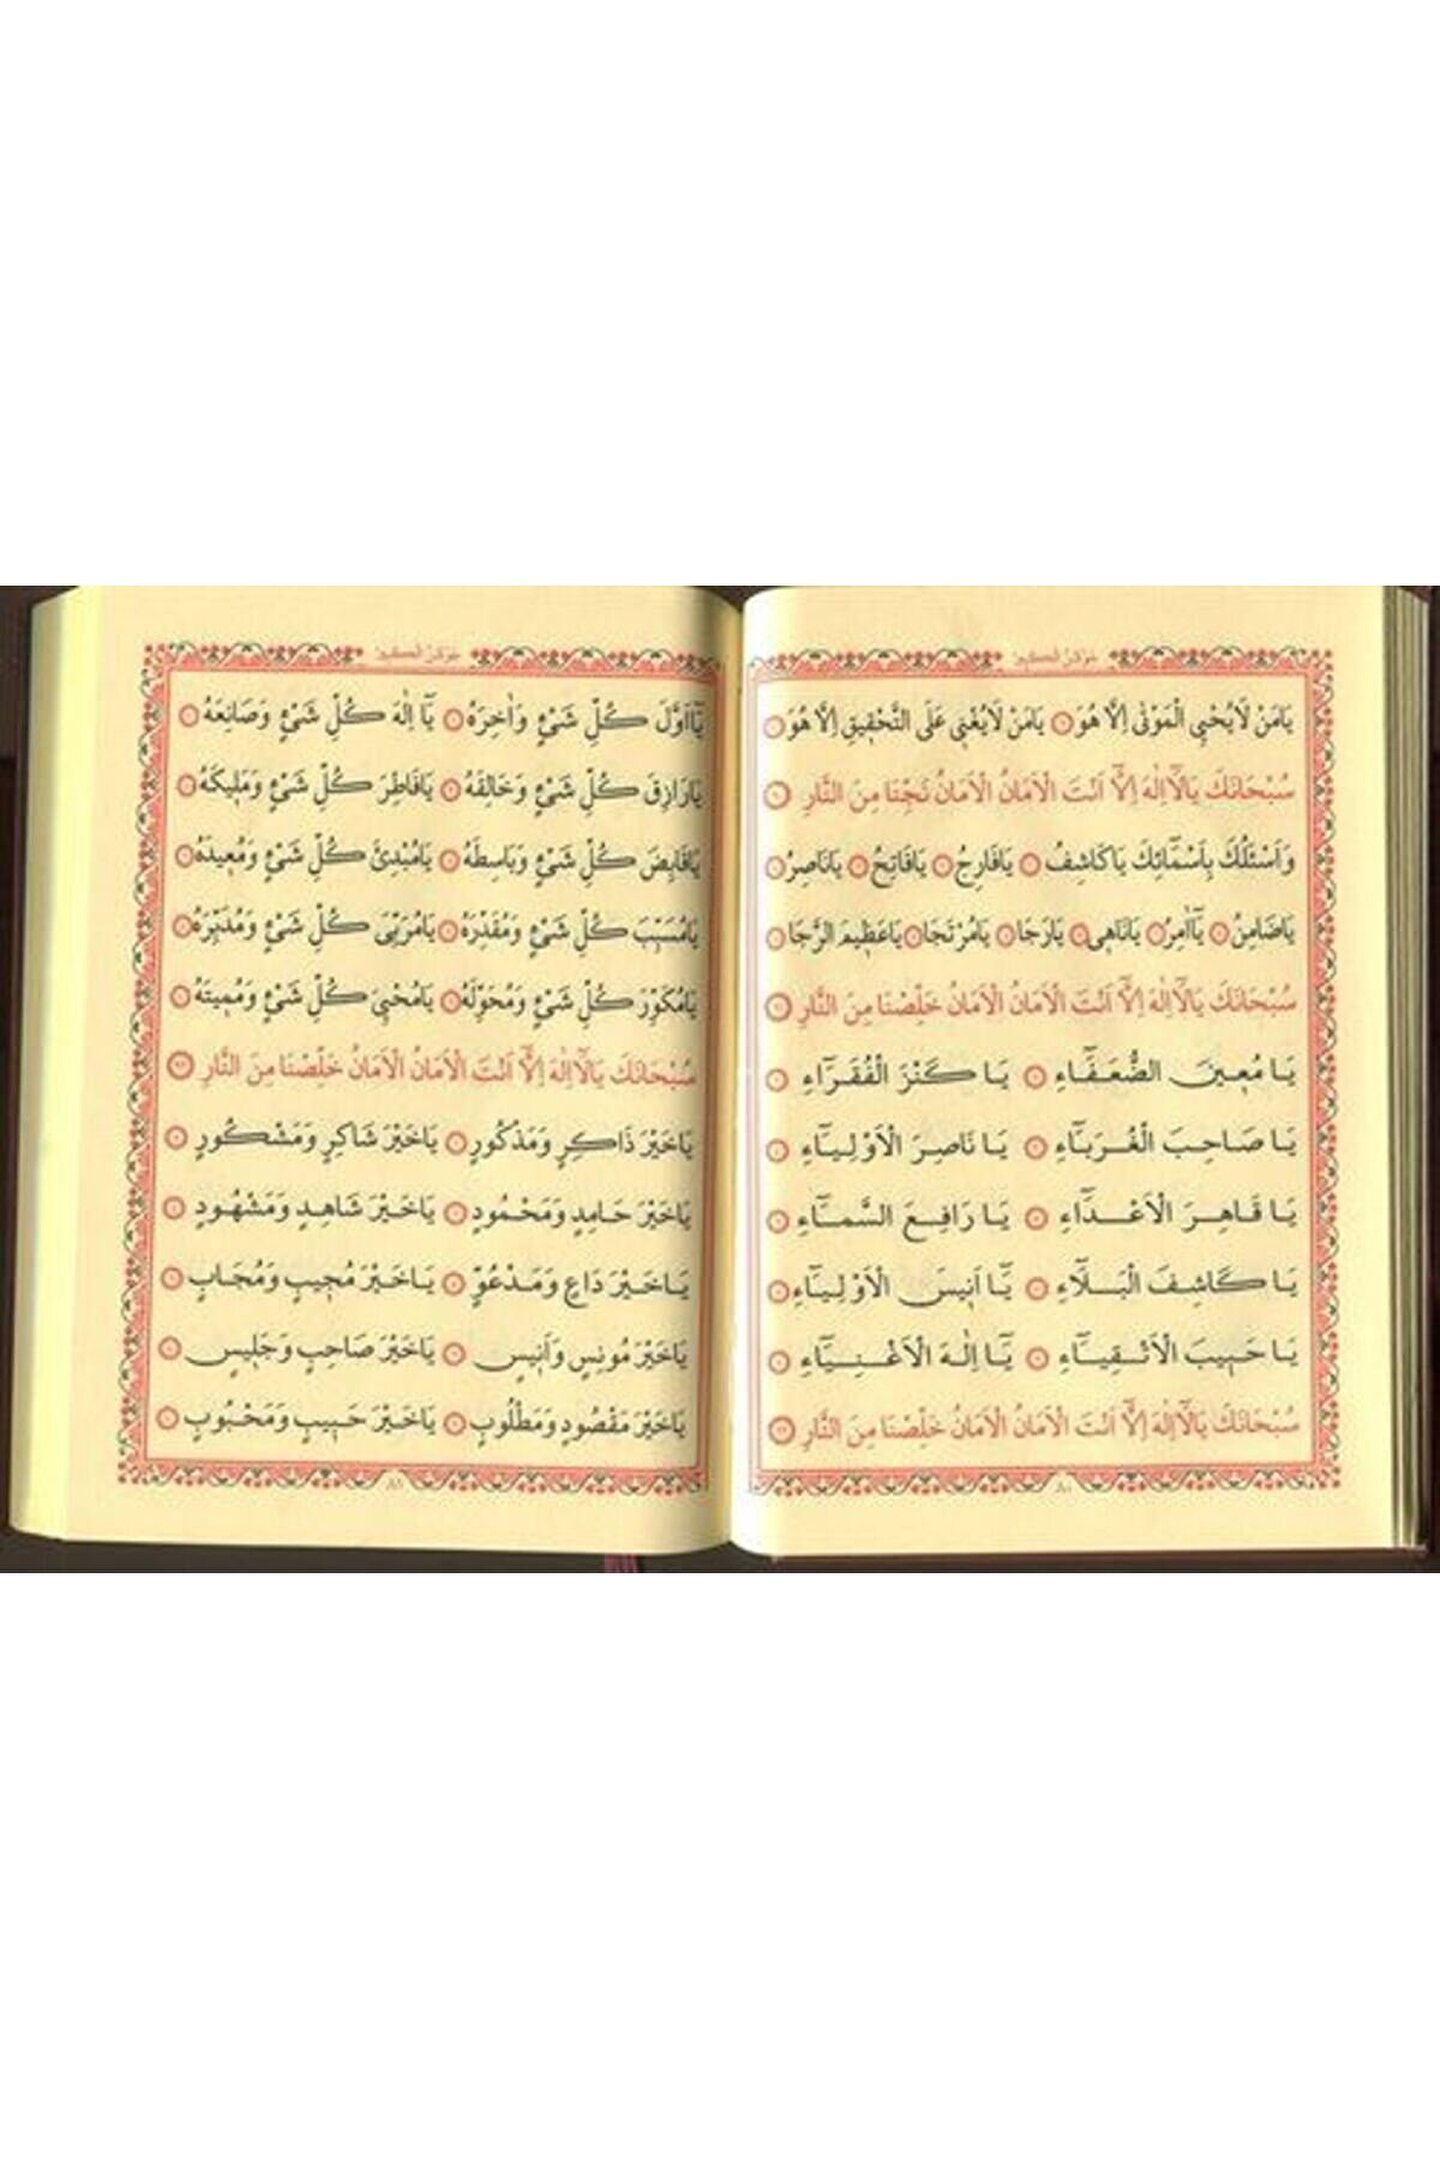 جوشن الكبير
يَامَنْ لَايُحْيِى الْمَوْتٰى اِلَّا هُوَ ۞ يَامَنْ لَايُغْنٖى عَلَى التَّحْقٖيقِ اِلَّا هُوَ ۞
سُبْحَانَكَ يَالَٓااِلٰهَ اِلَّٓا اَنْتَ الْاَمَانُ الْاَمَانُ نَجِّنَا مِنَ النَّارِ
وَاَسْئَلُكَ بِاَسْمَٓائِكَ يَاكَاشِفُ ۞ يَافَارِجُ ۞ يَافَاتِحُ ۞ يَانَاصِرُ ۞
يَاضَامِنُ ۞ يَٓااٰمِرُ ۞ يَانَاهٖى ۞ يَارَجَا ۞ يَامُرْتَجَا ۞ يَاعَظٖيمَ الرَّجَا ۞
سُبْحَانَكَ يَالَٓااِلٰهَ اِلَّٓا اَنْتَ الْاَمَانُ الْاَمَانُ خَلِّصْنَا مِنَ النَّارِ
يَا مُعٖينَ الضُّعَفَٓاءِ ۞ يَا كَنْزَ الْفُقَرَٓاءِ ۞
يَا صَاحِبَ الْغُرَبَٓاءِ ۞ يَا نَاصِرَ الْاَوْلِيَٓاءِ ۞
يَا قَاهِرَ الْاَعْدَٓاءِ ۞ يَا رَافِعَ السَّمَٓاءِ ۞
يَا كَاشِفَ الْبَلَٓاءِ ۞ يَٓا اَنٖيسَ الْاَوْلِيَٓاءِ ۞
يَا حَبٖيبَ الْاَتْقِيَٓاءِ ۞ يَٓا اِلٰهَ الْاَغْنِيَٓاءِ ۞
سُبْحَانَكَ يَالَٓااِلٰهَ اِلَّٓا اَنْتَ الْاَمَانُ الْاَمَانُ خَلِّصْنَا مِنَ النَّارِ
جوشن الكبير
يَٓااَوَّلَ كُلِّ شَىْءٍ وَاٰخِرَهُ ۞ يَٓا اِلٰهَ كُلِّ شَىْءٍ وَصَانِعَهُ ۞
يَارَازِقَ كُلِّ شَىْءٍ وَخَالِقَهُ ۞ يَافَاطِرَ كُلِّ شَىْءٍ وَمَلٖيكَهُ ۞
يَاقَابِضَ كُلِّ شَىْءٍ وَبَاسِطَهُ ۞ يَامُبْدِئَ كُلِّ شَىْءٍ وَمُعٖيدَهُ ۞
يَامُسَبِّبَ كُلِّ شَىْءٍ وَمُقَدِّرَهُ ۞ يَامُرَبِّىَ كُلِّ شَىْءٍ وَمُدَبِّرَهُ ۞
يَامُكَوِّرَ كُلِّ شَىْءٍ وَمُحَوِّلَهُ ۞ يَامُحْيِىَ كُلِّ شَىْءٍ وَمُمٖيتَهُ ۞
سُبْحَانَكَ يَالَٓااِلٰهَ اِلَّٓا اَنْتَ الْاَمَانُ الْاَمَانُ خَلِّصْنَا مِنَ النَّارِ
يَاخَيْرَ ذَاكِرٍ وَمَذْكُورٍ ۞ يَاخَيْرَ شَاكِرٍ وَمَشْكُورٍ ۞
يَاخَيْرَ حَامِدٍ وَمَحْمُودٍ ۞ يَاخَيْرَ شَاهِدٍ وَمَشْهُودٍ ۞
يَاخَيْرَ دَاعٍ وَمَدْعُوٍّ ۞ يَاخَيْرَ مُجٖيبٍ وَمُجَابٍ ۞
يَاخَيْرَ مُونِسٍ وَاَنٖيسٍ ۞ يَاخَيْرَ صَاحِبٍ وَجَلٖيسٍ ۞
يَاخَيْرَ مَقْصُودٍ وَمَطْلُوبٍ ۞ يَاخَيْرَ حَبٖيبٍ وَمَحْبُوبٍ ۞